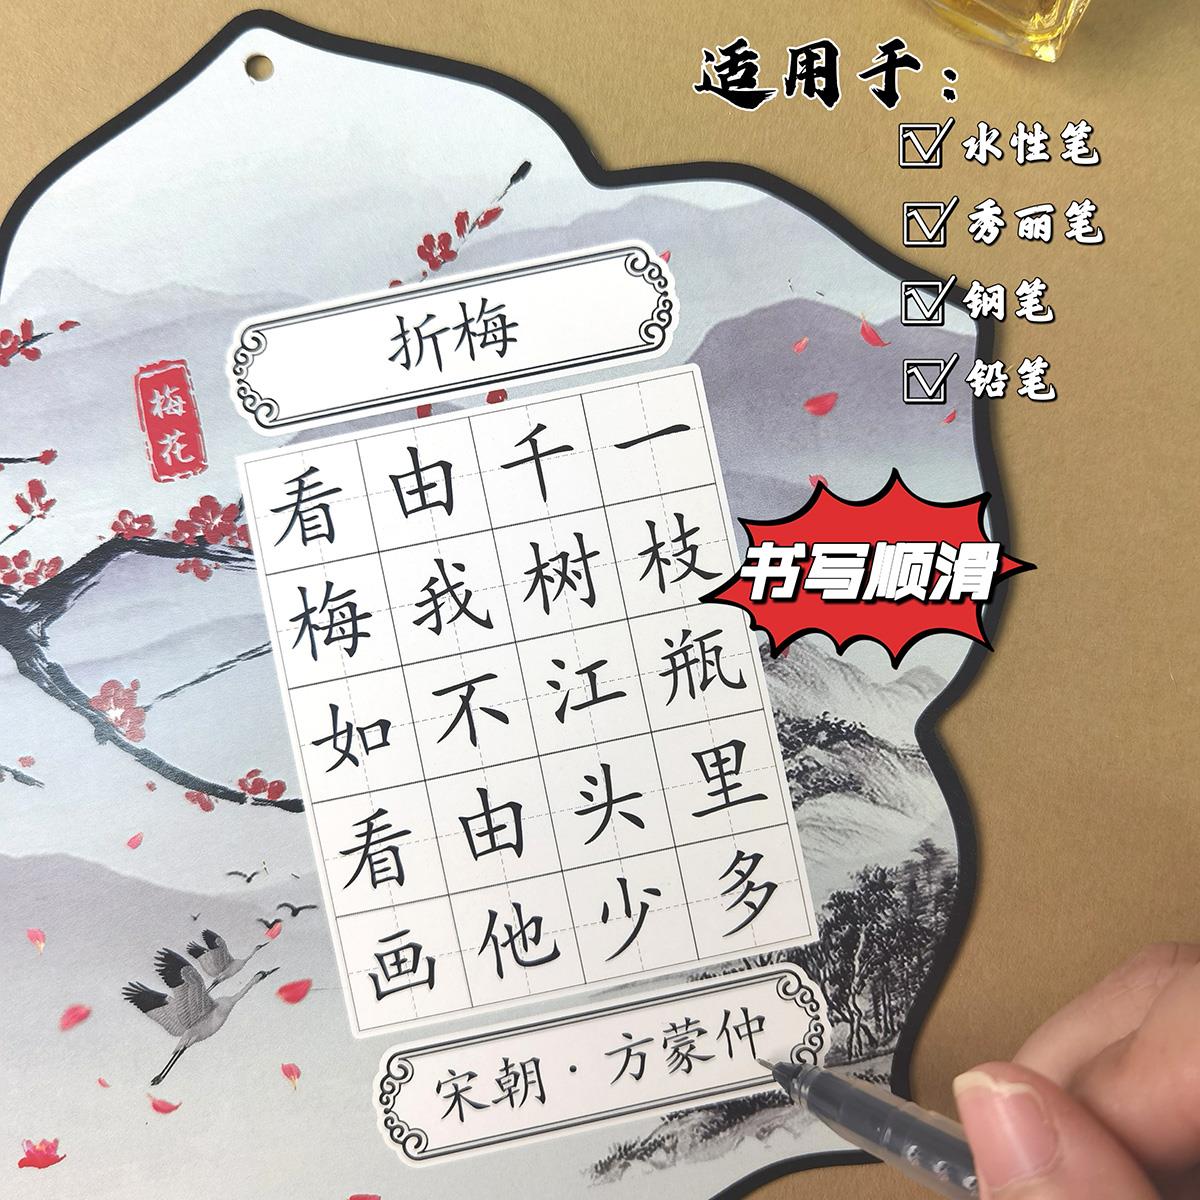 适用于：
水性笔
秀丽笔
钢笔
铅笔
折梅
梅花
一枝瓶里多
千树江头少
由我不由他
看梅如看画
书写顺滑
宋朝·方蒙仲